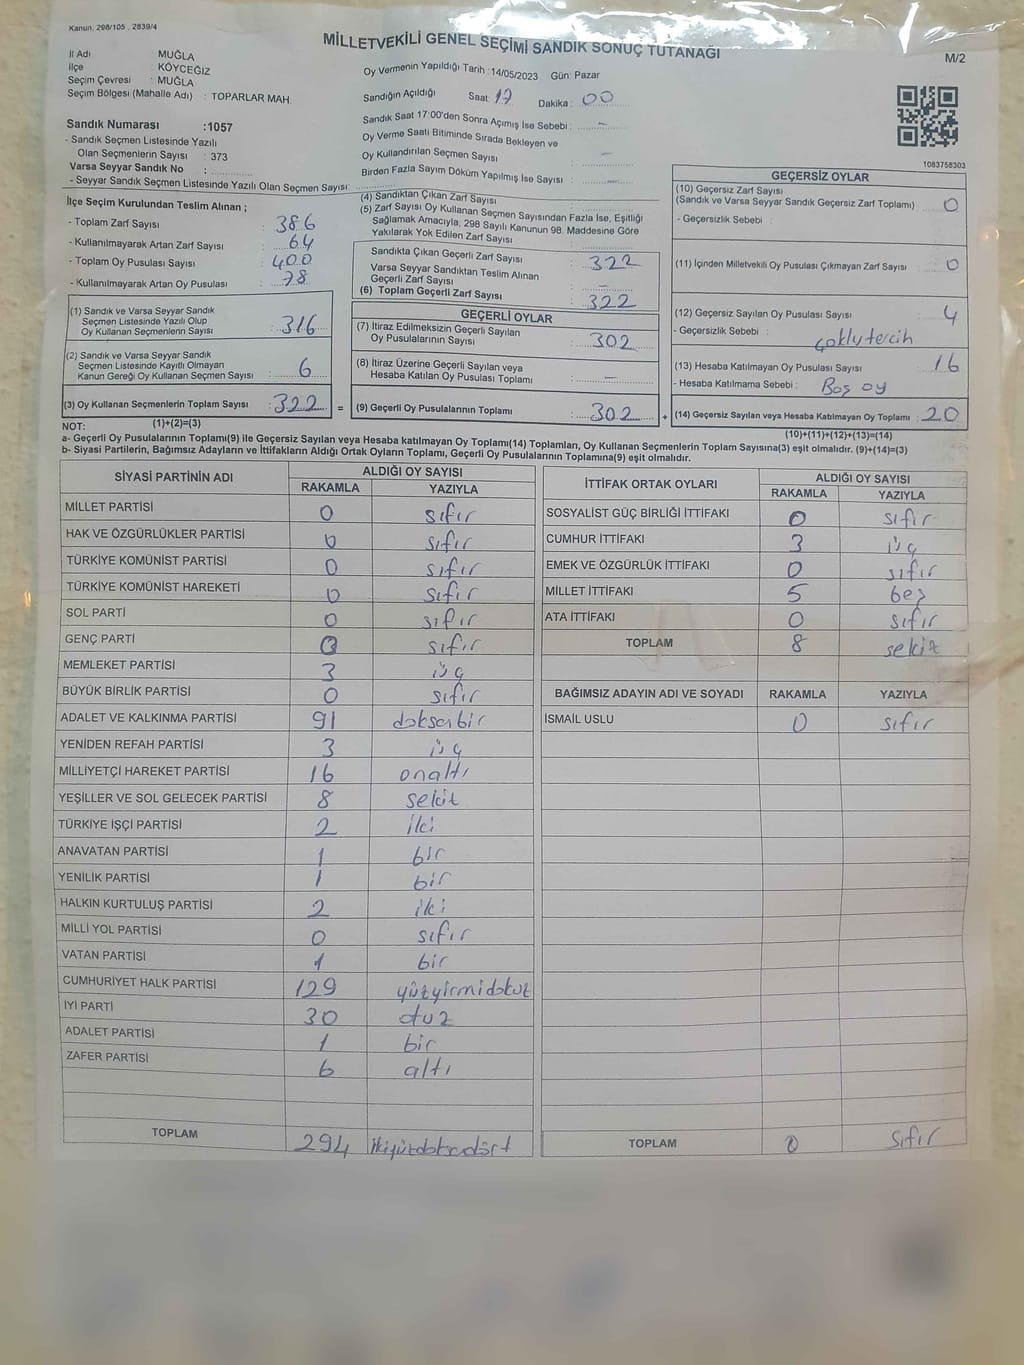 Kanun; 298/105 , 2839/4
MİLLETVEKİLİ GENEL SEÇİMİ SANDIK SONUÇ TUTANAĞI
M/2
İl Adı MUĞLA
İlçe KÖYCEĞİZ
Seçim Çevresi : MUĞLA
Seçim Bölgesi (Mahalle Adı) : TOPARLAR MAH.
Oy Vermenin Yapıldığı Tarih :14/05/2023 Gün: Pazar
Sandığın Açıldığı Saat: 17 Dakika : 00
Sandık Saat 17:00'den Sonra Açımış İse Sebebi : –
Oy Verme Saati Bitiminde Sırada Bekleyen ve
Oy Kullandırılan Seçmen Sayısı : –
Birden Fazla Sayım Döküm Yapılmış İse Sayısı : –
Sandık Numarası :1057
- Sandık Seçmen Listesinde Yazılı
Olan Seçmenlerin Sayısı : 373
Varsa Seyyar Sandık No :
- Seyyar Sandık Seçmen Listesinde Yazılı Olan Seçmen Sayısı:
1083758303
İlçe Seçim Kurulundan Teslim Alınan ;
- Toplam Zarf Sayısı : 386
- Kullanılmayarak Artan Zarf Sayısı : 64
- Toplam Oy Pusulası Sayısı : 400
- Kullanılmayarak Artan Oy Pusulası : 78
(1) Sandık ve Varsa Seyyar Sandık
Seçmen Listesinde Yazılı Olup
Oy Kullanan Seçmenlerin Sayısı : 316
(2) Sandık ve Varsa Seyyar Sandık
Seçmen Listesinde Kayıtlı Olmayan
Kanun Gereği Oy Kullanan Seçmen Sayısı : 6
(3) Oy Kullanan Seçmenlerin Toplam Sayısı : 322 =
(1)+(2)=(3)
(4) Sandıktan Çıkan Zarf Sayısı
(5) Zarf Sayısı Oy Kullanan Seçmen Sayısından Fazla İse, Eşitliği
Sağlamak Amacıyla, 298 Sayılı Kanunun 98. Maddesine Göre
Yakılarak Yok Edilen Zarf Sayısı :
Sandıkta Çıkan Geçerli Zarf Sayısı : 322
Varsa Seyyar Sandıktan Teslim Alınan
Geçerli Zarf Sayısı : –
(6) Toplam Geçerli Zarf Sayısı : 322
GEÇERLİ OYLAR
(7) İtiraz Edilmeksizin Geçerli Sayılan
Oy Pusulalarının Sayısı : 302
(8) İtiraz Üzerine Geçerli Sayılan veya
Hesaba Katılan Oy Pusulası Toplamı : –
(9) Geçerli Oy Pusulalarının Toplamı : 302 +
GEÇERSİZ OYLAR
(10) Geçersiz Zarf Sayısı
(Sandık ve Varsa Seyyar Sandık Geçersiz Zarf Toplamı) : 0
- Geçersizlik Sebebi :
(11) İçinden Milletvekili Oy Pusulası Çıkmayan Zarf Sayısı : 0
(12) Geçersiz Sayılan Oy Pusulası Sayısı : 4
- Geçersizlik Sebebi : çoklu tercih
(13) Hesaba Katılmayan Oy Pusulası Sayısı : 16
- Hesaba Katılmama Sebebi : Boş oy
(14) Geçersiz Sayılan veya Hesaba Katılmayan Oy Toplamı : 20
(10)+(11)+(12)+(13)=(14)
NOT:
a- Geçerli Oy Pusulalarının Toplamı(9) ile Geçersiz Sayılan veya Hesaba katılmayan Oy Toplamı(14) Toplamları, Oy Kullanan Seçmenlerin Toplam Sayısına(3) eşit olmalıdır. (9)+(14)=(3)
b- Siyasi Partilerin, Bağımsız Adayların ve İttifakların Aldığı Ortak Oyların Toplamı, Geçerli Oy Pusulalarının Toplamına(9) eşit olmalıdır.
SİYASİ PARTİNİN ADI ALDIĞI OY SAYISI
RAKAMLA YAZIYLA
MİLLET PARTİSİ 0 sıfır
HAK VE ÖZGÜRLÜKLER PARTİSİ 0 sıfır
TÜRKİYE KOMÜNİST PARTİSİ 0 sıfır
TÜRKİYE KOMÜNİST HAREKETİ 0 sıfır
SOL PARTİ 0 sıfır
GENÇ PARTİ 0 sıfır
MEMLEKET PARTİSİ 3 üç
BÜYÜK BİRLİK PARTİSİ 0 sıfır
ADALET VE KALKINMA PARTİSİ 91 doksanbir
YENİDEN REFAH PARTİSİ 3 üç
MİLLİYETÇİ HAREKET PARTİSİ 16 onaltı
YEŞİLLER VE SOL GELECEK PARTİSİ 8 sekiz
TÜRKİYE İŞÇİ PARTİSİ 2 iki
ANAVATAN PARTİSİ 1 bir
YENİLİK PARTİSİ 1 bir
HALKIN KURTULUŞ PARTİSİ 2 iki
MİLLİ YOL PARTİSİ 0 sıfır
VATAN PARTİSİ 1 bir
CUMHURİYET HALK PARTİSİ 129 yüzyirmidokuz
İYİ PARTİ 30 otuz
ADALET PARTİSİ 1 bir
ZAFER PARTİSİ 6 altı
TOPLAM 294 ikiyüzdoksandört
İTTİFAK ORTAK OYLARI ALDIĞI OY SAYISI
RAKAMLA YAZIYLA
SOSYALİST GÜÇ BİRLİĞİ İTTİFAKI 0 sıfır
CUMHUR İTTİFAKI 3 üç
EMEK VE ÖZGÜRLÜK İTTİFAKI 0 sıfır
MİLLET İTTİFAKI 5 beş
ATA İTTİFAKI 0 sıfır
TOPLAM 8 sekiz
BAĞIMSIZ ADAYIN ADI VE SOYADI RAKAMLA YAZIYLA
İSMAİL USLU 0 sıfır
TOPLAM 0 sıfır